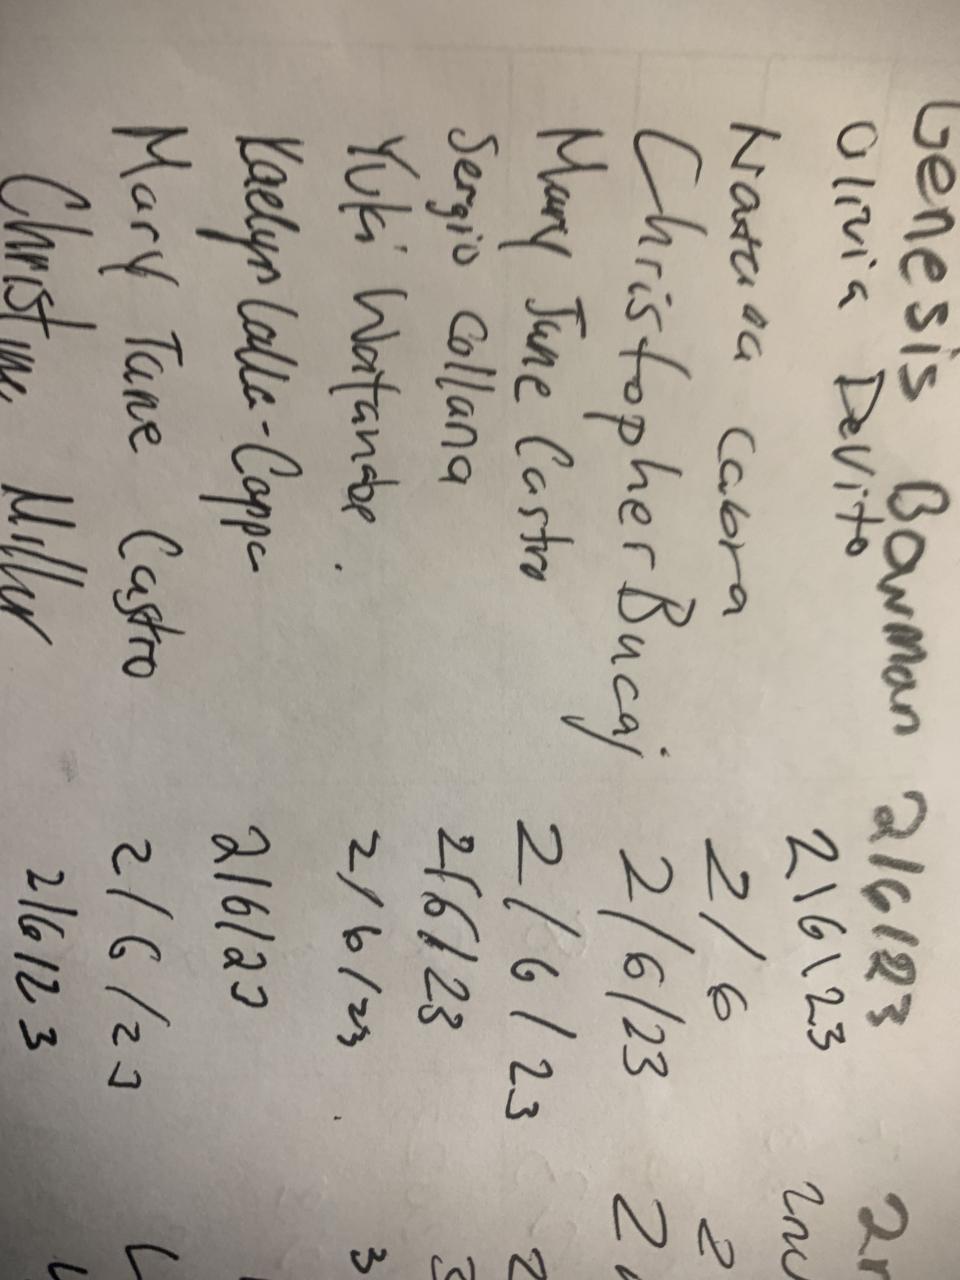 Genesis Bowman 2/6/23 2n
Olivia DeVito 2\6\23 2nd
Cabra 2/6 2
Christopher Bucaj 2/6/23 2
Mary Jane Castro 2/6/23 2
Sergio Collana 2/6/23 3
Yuki Watanabe. 2/6/23. 3
Kaelyn Calle-Coppa 2/6/23
Mary Jane Castro 2/6/23
Christine Miller 2/6/23